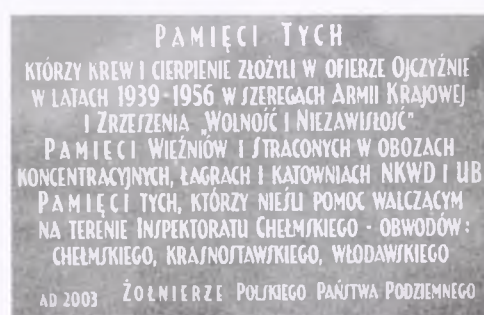 PAMIĘCI TYCH
KTÓRZY KREW I CIERPIENIE ZŁOŻYLI W OFIERZE OJCZYŹNIE
W LATACH 1939-1956 W SZEREGACH ARMII KRAJOWEJ
I ZRZESZENIA „WOLNOŚĆ I NIEZAWISŁOŚĆ"
PAMIĘCI WIĘŹNIÓW I STRACONYCH W OBOZACH
KONCENTRACYJNYCH, ŁAGRACH I KATOWNIACH NKWD I UB
PAMIĘCI TYCH, KTÓRZY NIEŚLI POMOC WALCZĄCYM
NA TERENIE INSPEKTORATU CHEŁMSKIEGO - OBWODÓW:
CHEŁMSKIEGO, KRASNOSTAWSKIEGO, WŁODAWSKIEGO
AD 2003 ŻOŁNIERZE POLSKIEGO PAŃSTWA PODZIEMNEGO